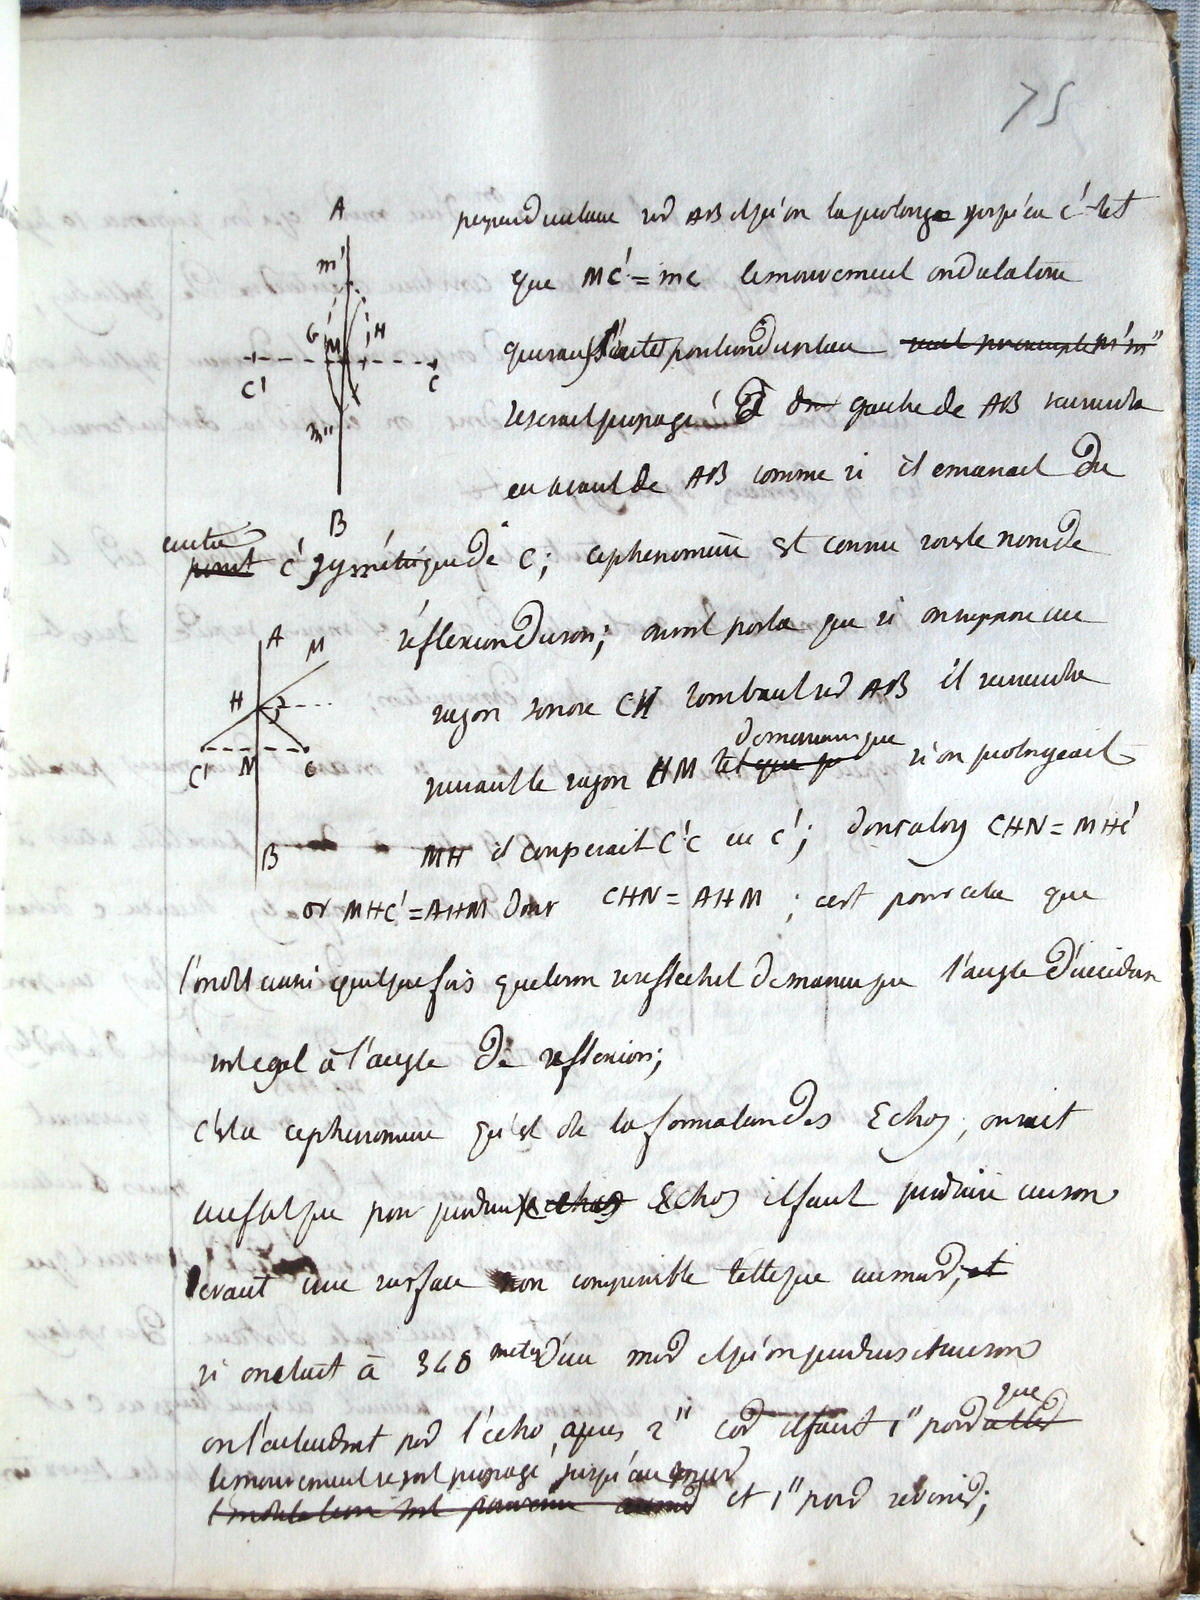 75
perpendiculaire sur AB et qu'on la prolonge jusqu'en C' tel
que MC' = mc le mouvement ondulatoire
qui sans l'acte pendiculaire
se serait propagé à gauche de AB reviendra
en avant de AB comme si il emanait du
centre
point C' symétrique de C; ce phenomène est connu sous le nom de
réflexion du son; on voit par la que si on suppose un
rayon sonore CH tombant sur AB il reviendra
de maniere que
suivant le rayon HM tel que si on prolongeait
MH il couperait C'C en C'; donc alors CHN = MHC'
or MHC' = AHM donc CHN = AHM ; c'est pour cela que
l'on dit aussi quelquefois que le son se reflechit de maniere que l'angle d'incidence
est egal à l'angle de reflexion;
c'est a ce phenomene qu'est dû la formation des Echos, on sait
en effet que pour produire echos Echos il faut produire un son
devant une surface non compressible telle que un mur; et
si on etait à 340 metres d'un mur et qu'on produisit un son
que
on l'entendrait par l'echo apres 2" car il faut 1" pour aller
le mouvement se soit propagé jusqu'au mur
et 1" pour revenir;
A
m'
G
M
H
C'
C
m"
B
A
M
H
C'
N
C
B